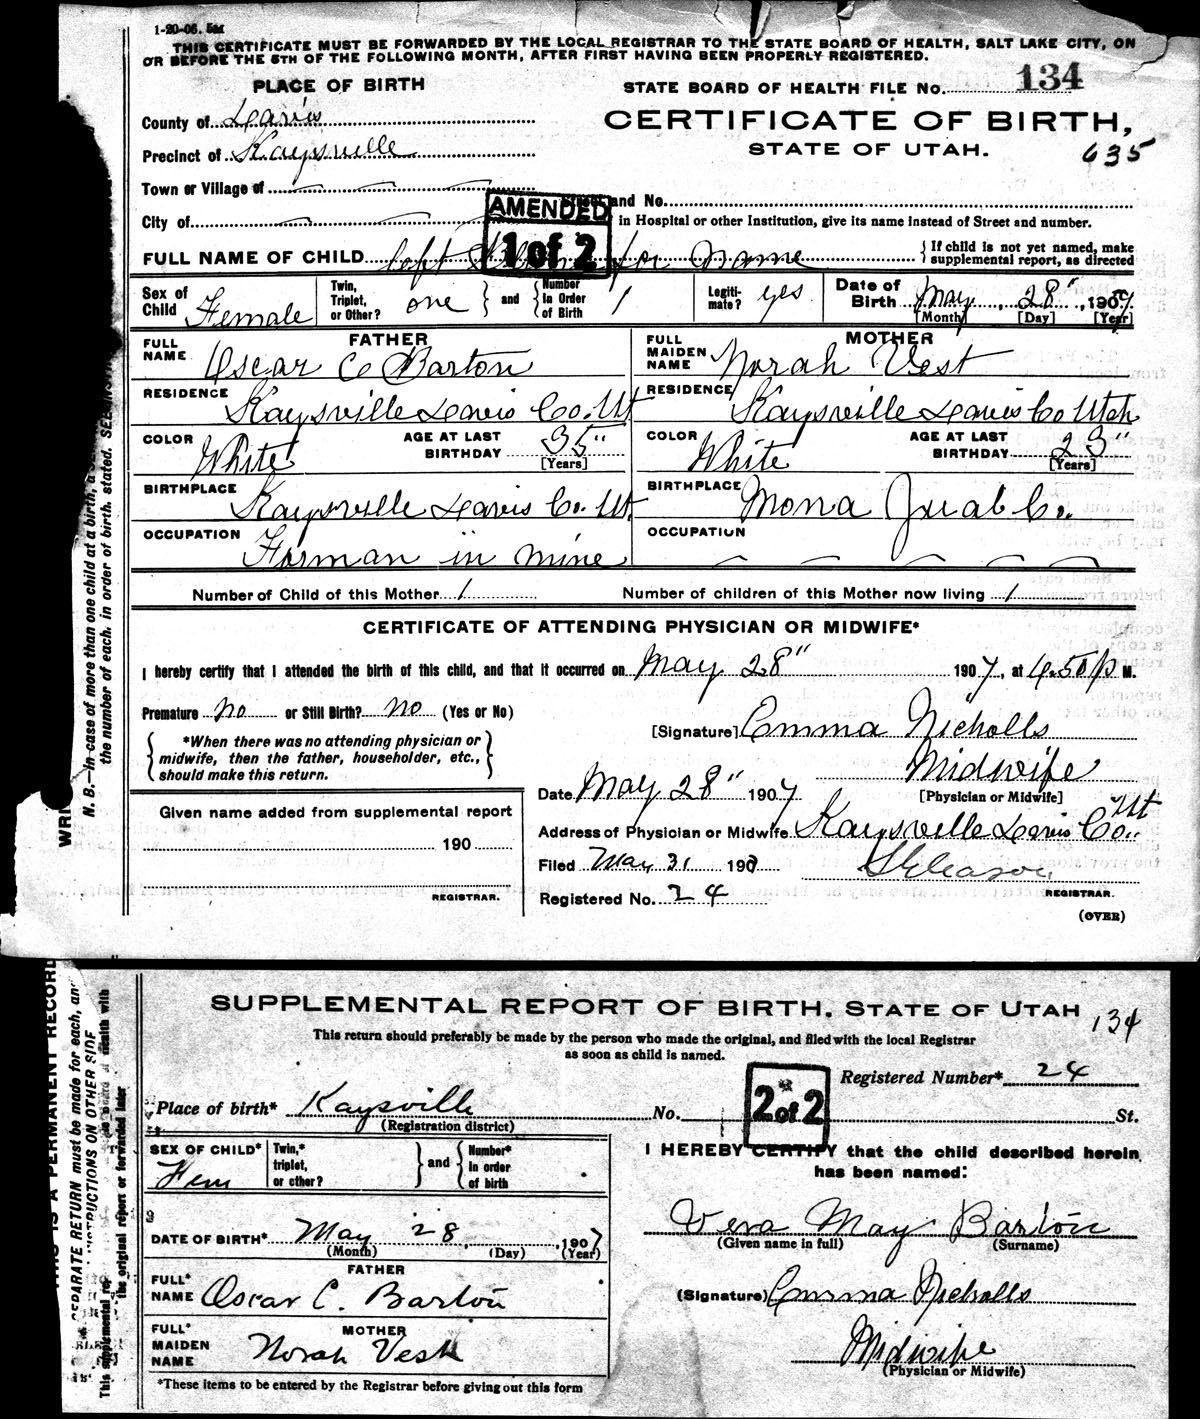 1-20-06. 5M
THIS CERTIFICATE MUST BE FORWARDED BY THE LOCAL REGISTRAR TO THE STATE BOARD OF HEALTH, SALT LAKE CITY, ON
OR BEFORE THE 5TH OF THE FOLLOWING MONTH, AFTER FIRST HAVING BEEN PROPERLY REGISTERED.
PLACE OF BIRTH
STATE BOARD OF HEALTH FILE No. 134
County of Davis
CERTIFICATE OF BIRTH,
Precinct of Kaysville
STATE OF UTAH. 635
Town or Village of
AMENDED
and No.
City of
in Hospital or other Institution, give its name instead of Street and number.
1 of 2
FULL NAME OF CHILD left for name
{ If child is not yet named, make
supplemental report, as directed
Sex of Child Female
Twin, Triplet, or Other? one } and { Number In Order of Birth 1
Legitimate? yes
Date of Birth May 28" 1907
[Month] [Day] [Year]
FATHER
FULL NAME Oscar C Barton
MOTHER
FULL MAIDEN NAME Norah Vest
RESIDENCE Kaysville Davis Co. Ut
RESIDENCE Kaysville Davis Co Utah
COLOR White AGE AT LAST BIRTHDAY 35" [Years]
COLOR White AGE AT LAST BIRTHDAY 23" [Years]
BIRTHPLACE Kaysville Davis Co. Ut.
BIRTHPLACE Mona Juab Co.
OCCUPATION Forman in mine
OCCUPATION
Number of Child of this Mother 1
Number of children of this Mother now living 1
CERTIFICATE OF ATTENDING PHYSICIAN OR MIDWIFE*
I hereby certify that I attended the birth of this child, and that it occurred on May 28" 1907, at 4.50 P M.
Premature no or Still Birth? no (Yes or No)
[Signature] Emma Nicholls
*When there was no attending physician or
midwife, then the father, householder, etc.,
should make this return.
Midwife
[Physician or Midwife]
Date May 28" 1907
Given name added from supplemental report
Address of Physician or Midwife Kaysville Davis Co. Ut
190
Filed May 31 190
S Gleason
REGISTRAR.
Registered No. 24
REGISTRAR.
(OVER)
N. B.—In case of more than one child at a birth, a
the number of each, in order of birth, stated. SEE INS
WRI
SUPPLEMENTAL REPORT OF BIRTH, STATE OF UTAH
134
This return should preferably be made by the person who made the original, and filed with the local Registrar
as soon as child is named.
Registered Number* 24
2 of 2
Place of birth* Kaysville No. St.
(Registration district)
SEX OF CHILD* Fem
Twin,* triplet, or other? } and { Number* in order of birth
I HEREBY CERTIFY that the child described herein
has been named:
Vera May Barton
(Given name in full) (Surname)
DATE OF BIRTH* May 28, 1907
(Month) (Day) (Year)
FATHER
FULL* NAME Oscar C. Barton
(Signature) Emma Nicholls
MOTHER
FULL* MAIDEN NAME Norah Vest
Midwife
(Physician or Midwife)
*These items to be entered by the Registrar before giving out this form
IS A PERMANENT RECORD
SEPARATE RETURN must be made for each, an
INSTRUCTIONS ON OTHER SIDE
This supplemental rep
the original report or forwarded later